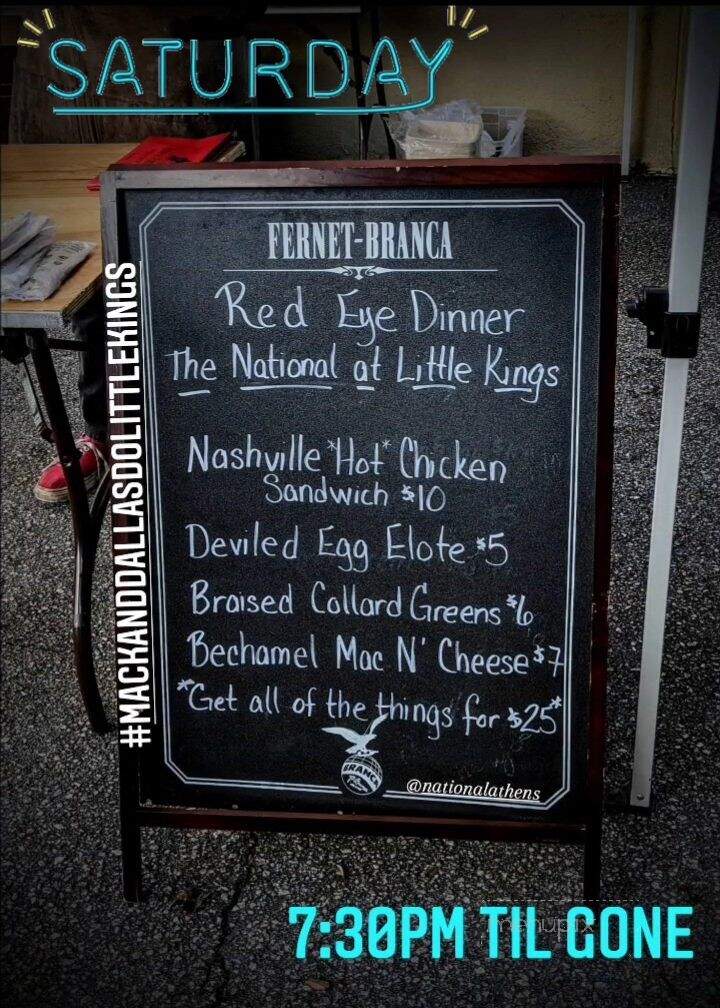 SATURDAY
FERNET-BRANCA
Red Eye Dinner
The National at Little Kings
Nashville *Hot* Chicken
Sandwich $10
Deviled Egg Elote $5
Braised Collard Greens $6
Bechamel Mac N' Cheese $7
*Get all of the things for $25*
BRANCA
@nationalathens
#MACKANDDALLASDOLITTLEKINGS
7:30PM TIL GONE
menupix